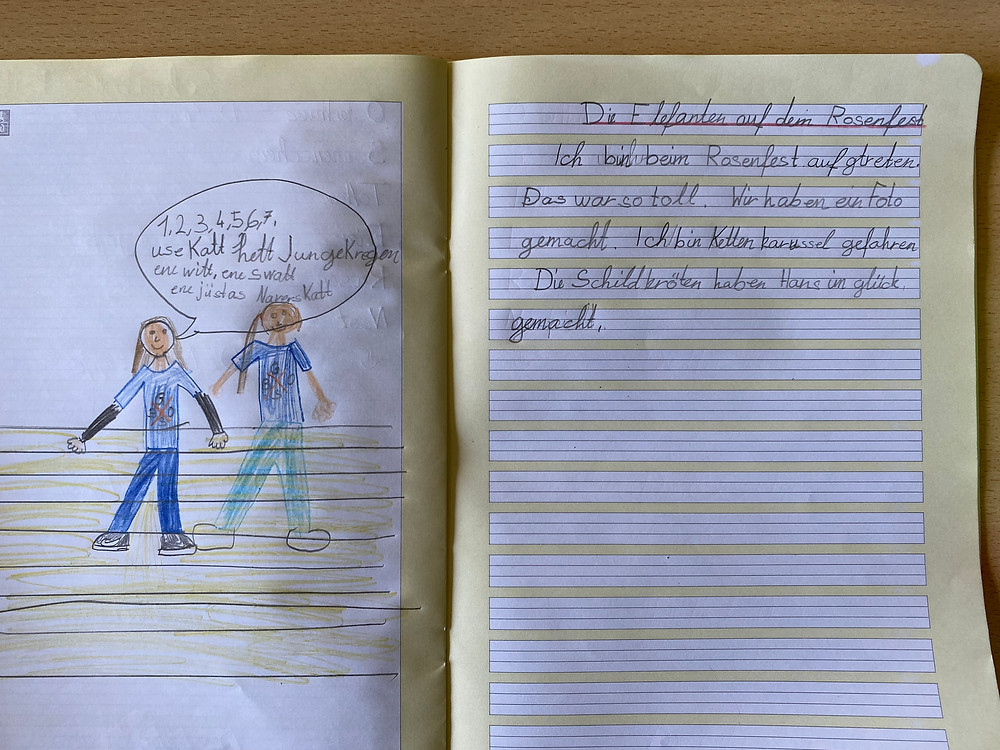 1,2,3,4,5,6,7,
use Katt hett Junge Kregen
ene witt, ene swatt
ene jüst as Navers Katt
Die Elefanten auf dem Rosenfest
Ich bin beim Rosenfest aufgtreten.
Das war so toll. Wir haben ein Foto
gemacht. Ich bin Ketten karussel gefahren
Die Schildkröten haben Hans im glück.
gemacht.